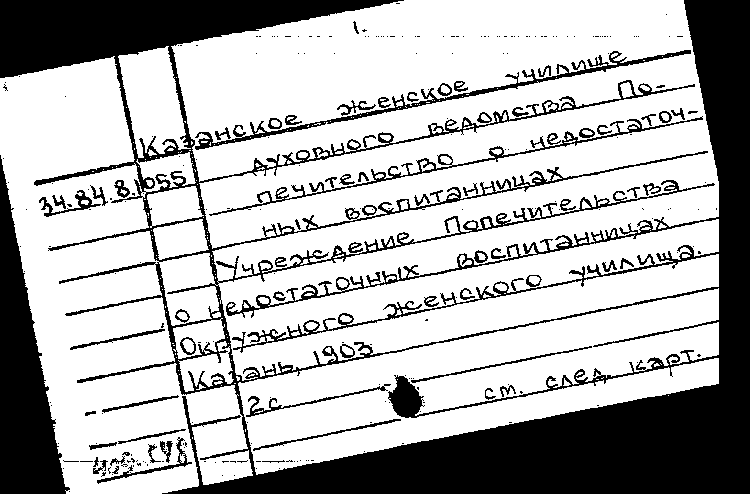 1.
Казанское женское училище
духовного ведомства. По-
34.84.8.1055
печительство о недостаточ-
ных воспитанницах
Учреждение Попечительства
о недостаточных воспитанницах
Окружного женского училища.
Казань, 1903
2с
см. след. карт.